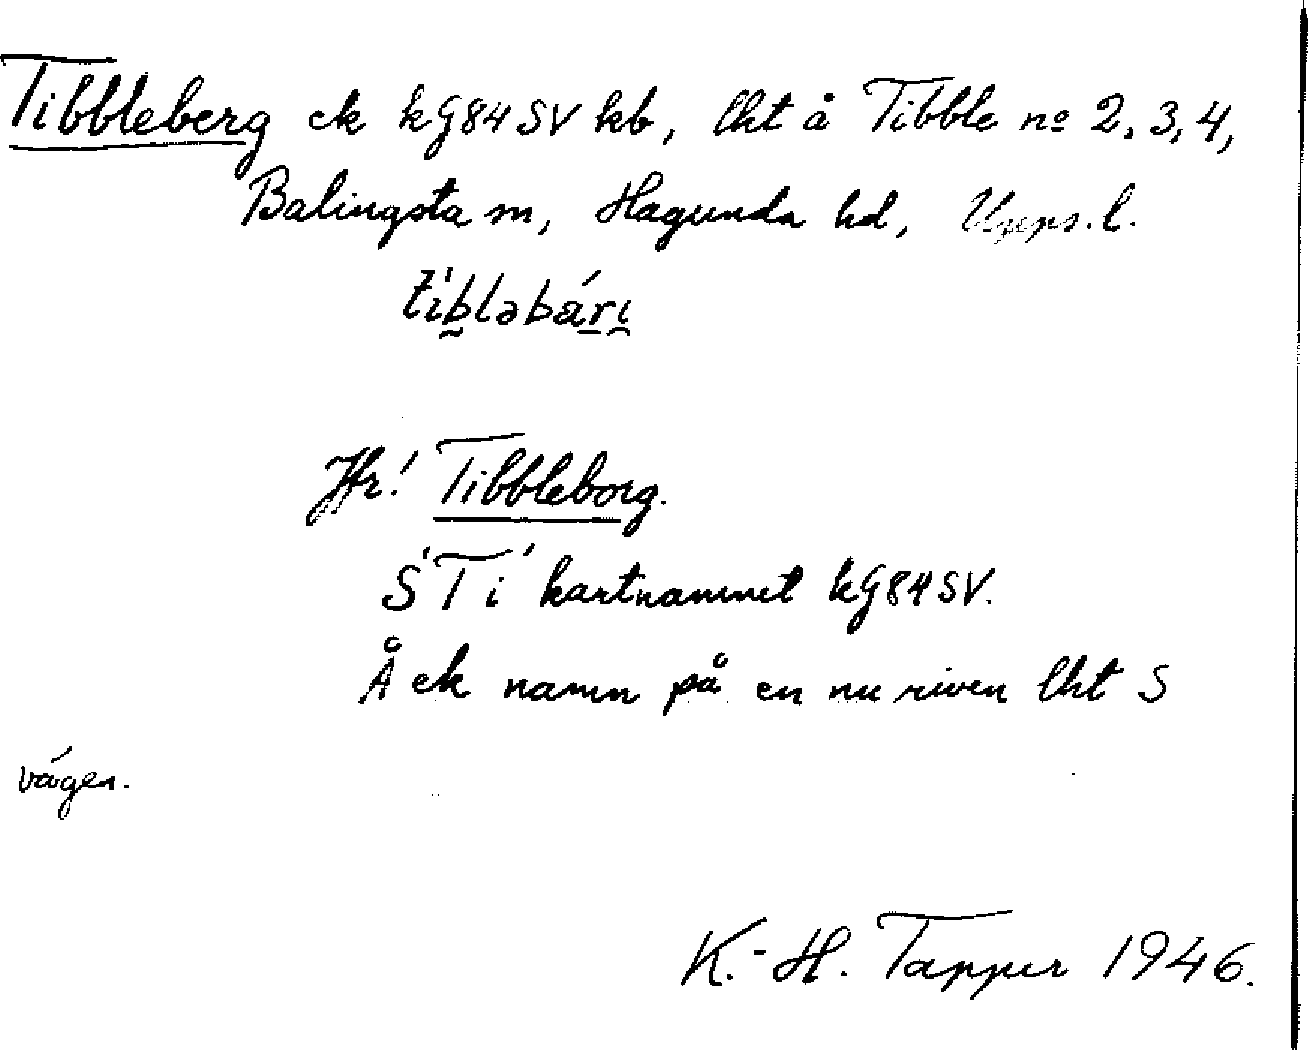 Tibbleberg ek kG84SV kb, lht å Tibble no 2, 3, 4,
Balingsta sn, Hagunda hd, Upps. l.
tíb̰ləbár̠ı̯
Jfr! Tibbleborg.
S 'T i' kartnamnet kG84SV.
Å ek namn på en nu riven lht S
vägen.
K.-H. Tapper 1946.